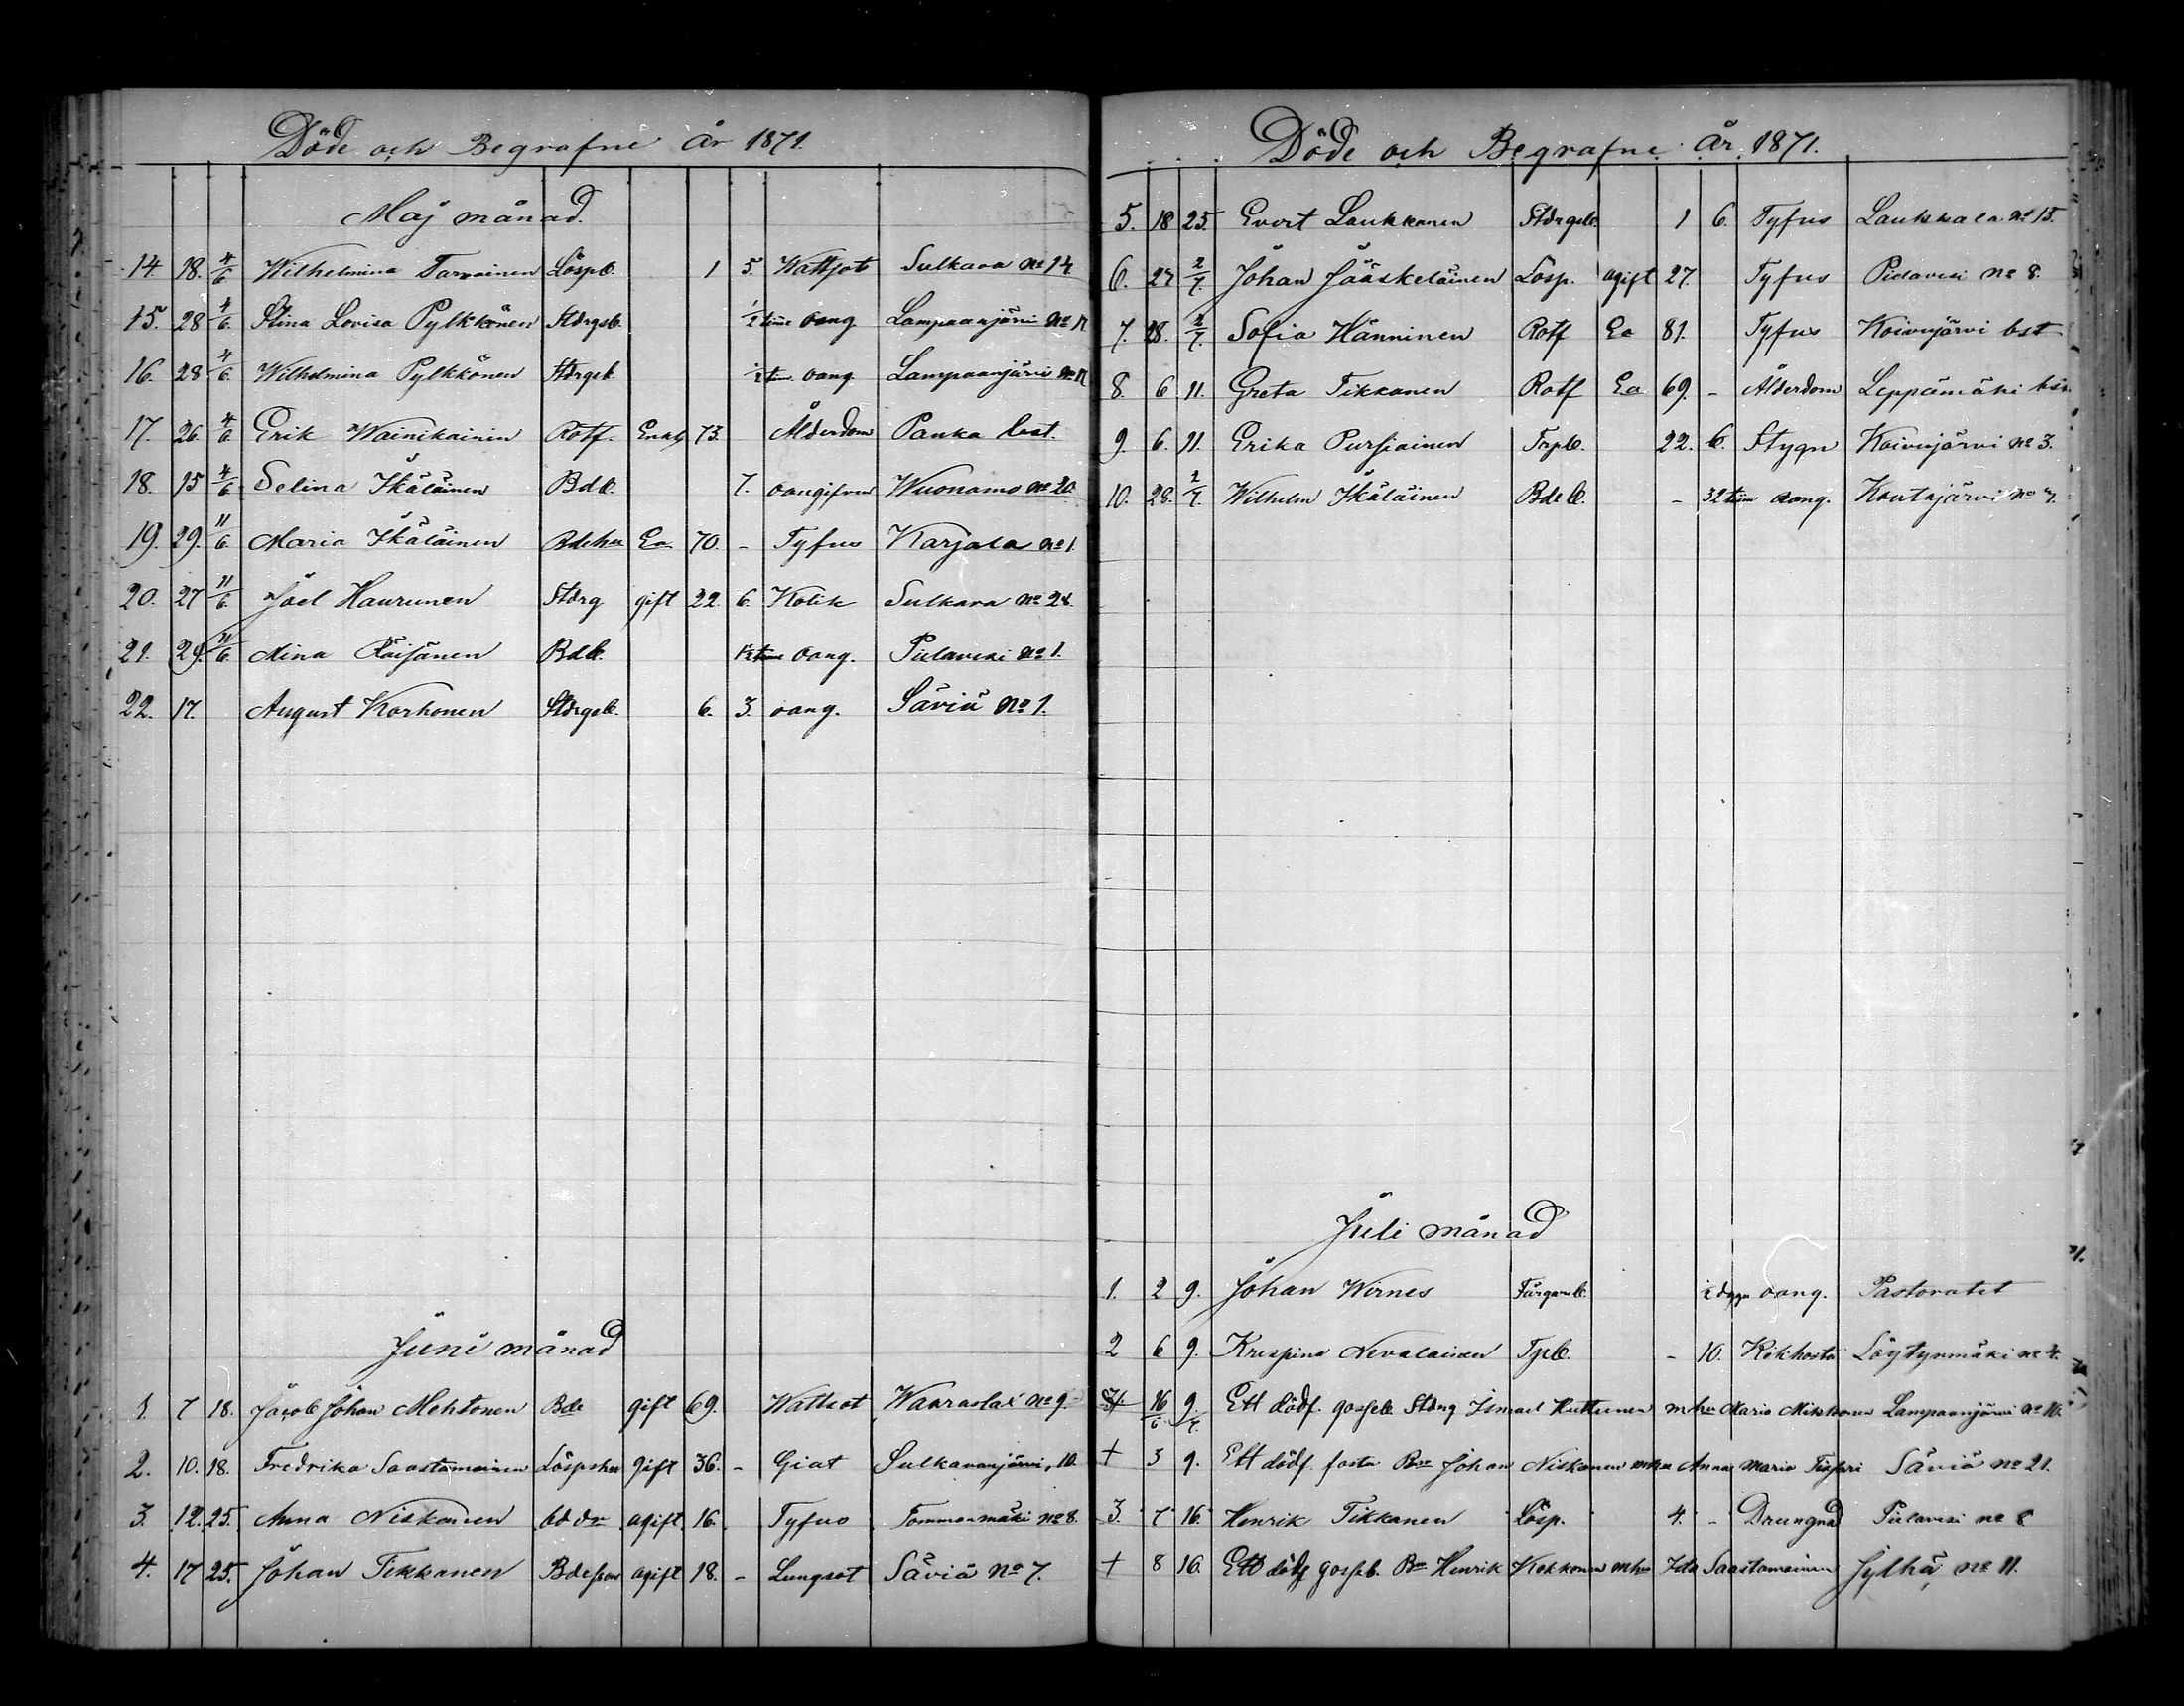 Döde och Begrafne År 1871.
Maj månad.
14. 18. 4/6 Wilhelmina Tarvainen Löspb. 1 5. Wattsot Sulkava no 14
15. 28 4/6 Stina Lovisa Pylkkönen Stdrgsb. 1/2 time oang. Lampaanjärvi no 12
16. 28 4/6 Wilhelmina Pylkkönen Stdrgsb. 1/2 tim. oang. Lampaanjärvi no 12
17. 26. 4/6 Erik Wainikainen Rotf. Enkl. 73. Ålderdom Panka bst.
18. 15 4/6 Selina Ikäläinen Bdb. 7. oangifven Wuonamo no 20.
19. 29. 11/6 Maria Ikäläinen Bdehu Ea 70. - Tyfus Karjala no 1.
20. 27 11/6 Joel Haurunen Stdrg gift 22. 6. Kolik Sulkava no 24.
21. 29. 11/6 Mina Räisänen Bdb. 1/2 time oang. Pielavesi no 1.
22. 17. August Korhonen Stdrgsb. 6. 3. oang. Säviä No 1.
Juni månad
1. 7 18. Jacob Johan Mehtonen Bde gift 69. Wattsot Waaraslax no 9
2. 10. 18. Fredrika Saastamoinen Löspshu gift 36. - Gist Sulkavanjärvi 10.
3. 12. 25. Anna Niskanen bd dr ogift 16. Tyfus Tommonmäki no 8.
4. 17 25. Johan Tikkanen Bdeson ogift 18. - Lungsot Säviä No 7.
Döde och Begrafne År 1871.
5. 18 25. Evert Laukkanen Stdrgsb. 1 6. Tyfus Laukkala no 15.
6. 27 2/7. Johan Jääskeläinen Lösp. ogift 27. Tyfus Pielavesi No 8.
7. 28. 2/7. Sofia Hänninen Rotf Ea 81. Tyfus Koivujärvi bst
8. 6 11. Greta Tikkanen Rotf Ea 69. - Ålderdom Leppämäki bst
9. 6. 11. Erika Pursiainen Trpb. 22. 6. Stygn Koivujärvi no 3.
10. 28. 2/7. Wilhelm Ikäläinen Bdeb. - 32 tim oang. Koutajärvi no 7.
Juli månad
1. 2 9. Johan Wirnes Färgareb. 2 dygn oang. Pastoratet
2 6 9. Krispina Nevalainen Tpb. - 10. Kikhosta Löytynmäki no 4.
+ 16/6 9/7. Ett dödf. gosseb. Stdrg Ismael Huttunen m hu Maria Mikkonen Lampaanjärvi no 10.
+ 3 9. Ett dödf. foster Bne Johan Niskanen m hu Anna Maria Tissari Säviä no 21.
3. 7 16. Henrik Tikkanen Lösp. 4. - Drungnad Pielavesi no 8
+ 8 16. Ett dödf gosseb. Bn Henrik Kokkonen m hu Ida Saastamoinen Jylhä no 11.